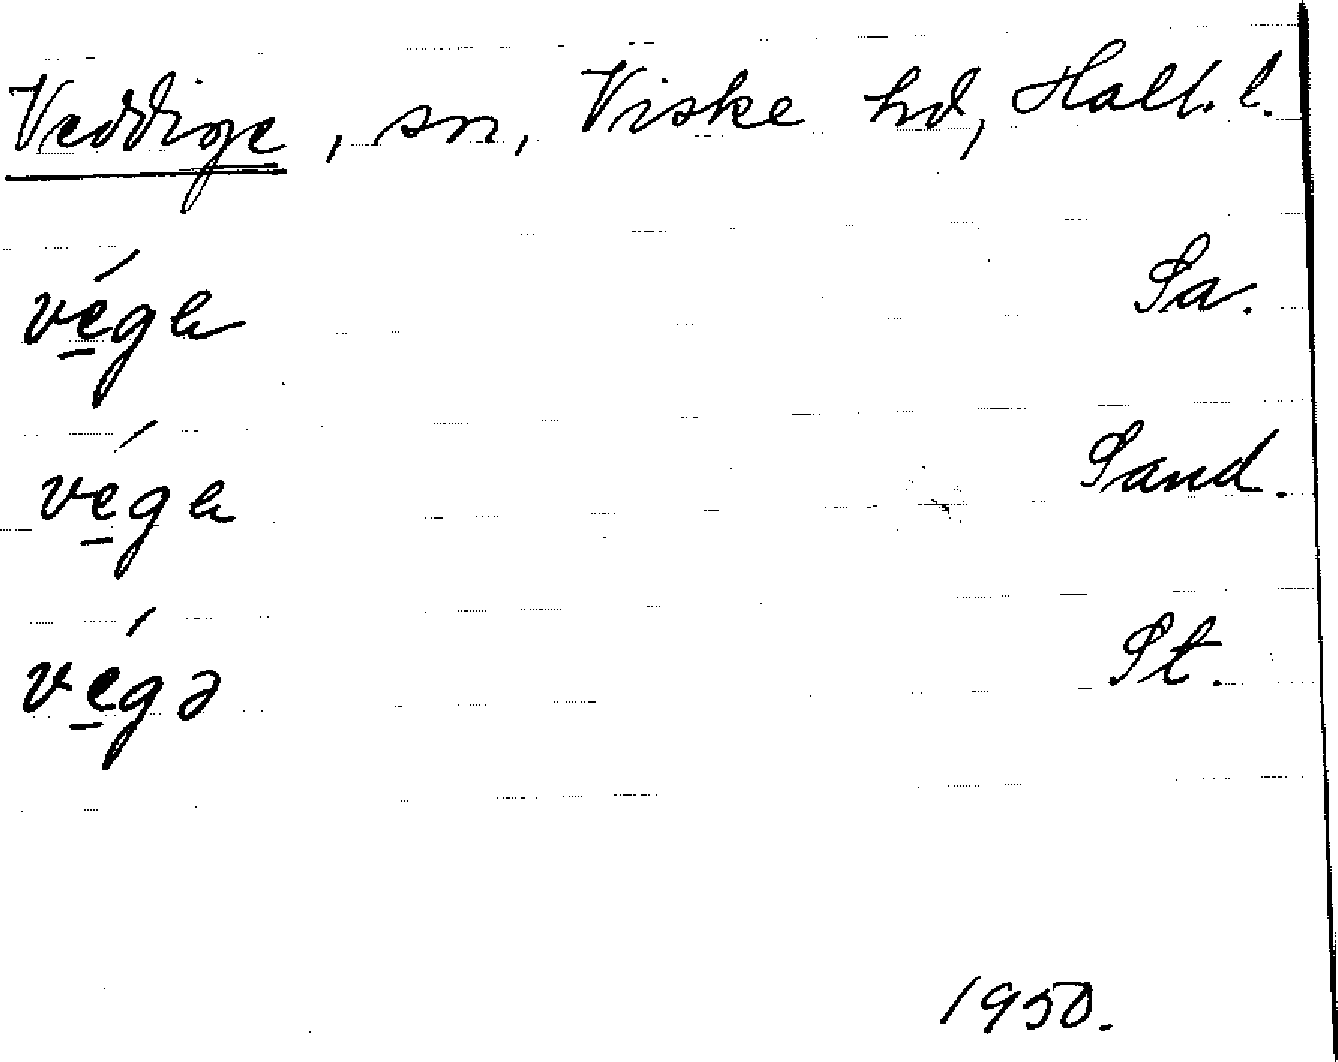 Veddige, sn, Viske hd, Hall. l.
vé̱ga Sa.
vé̱ga Sand.
vé̱gə St.
1950.